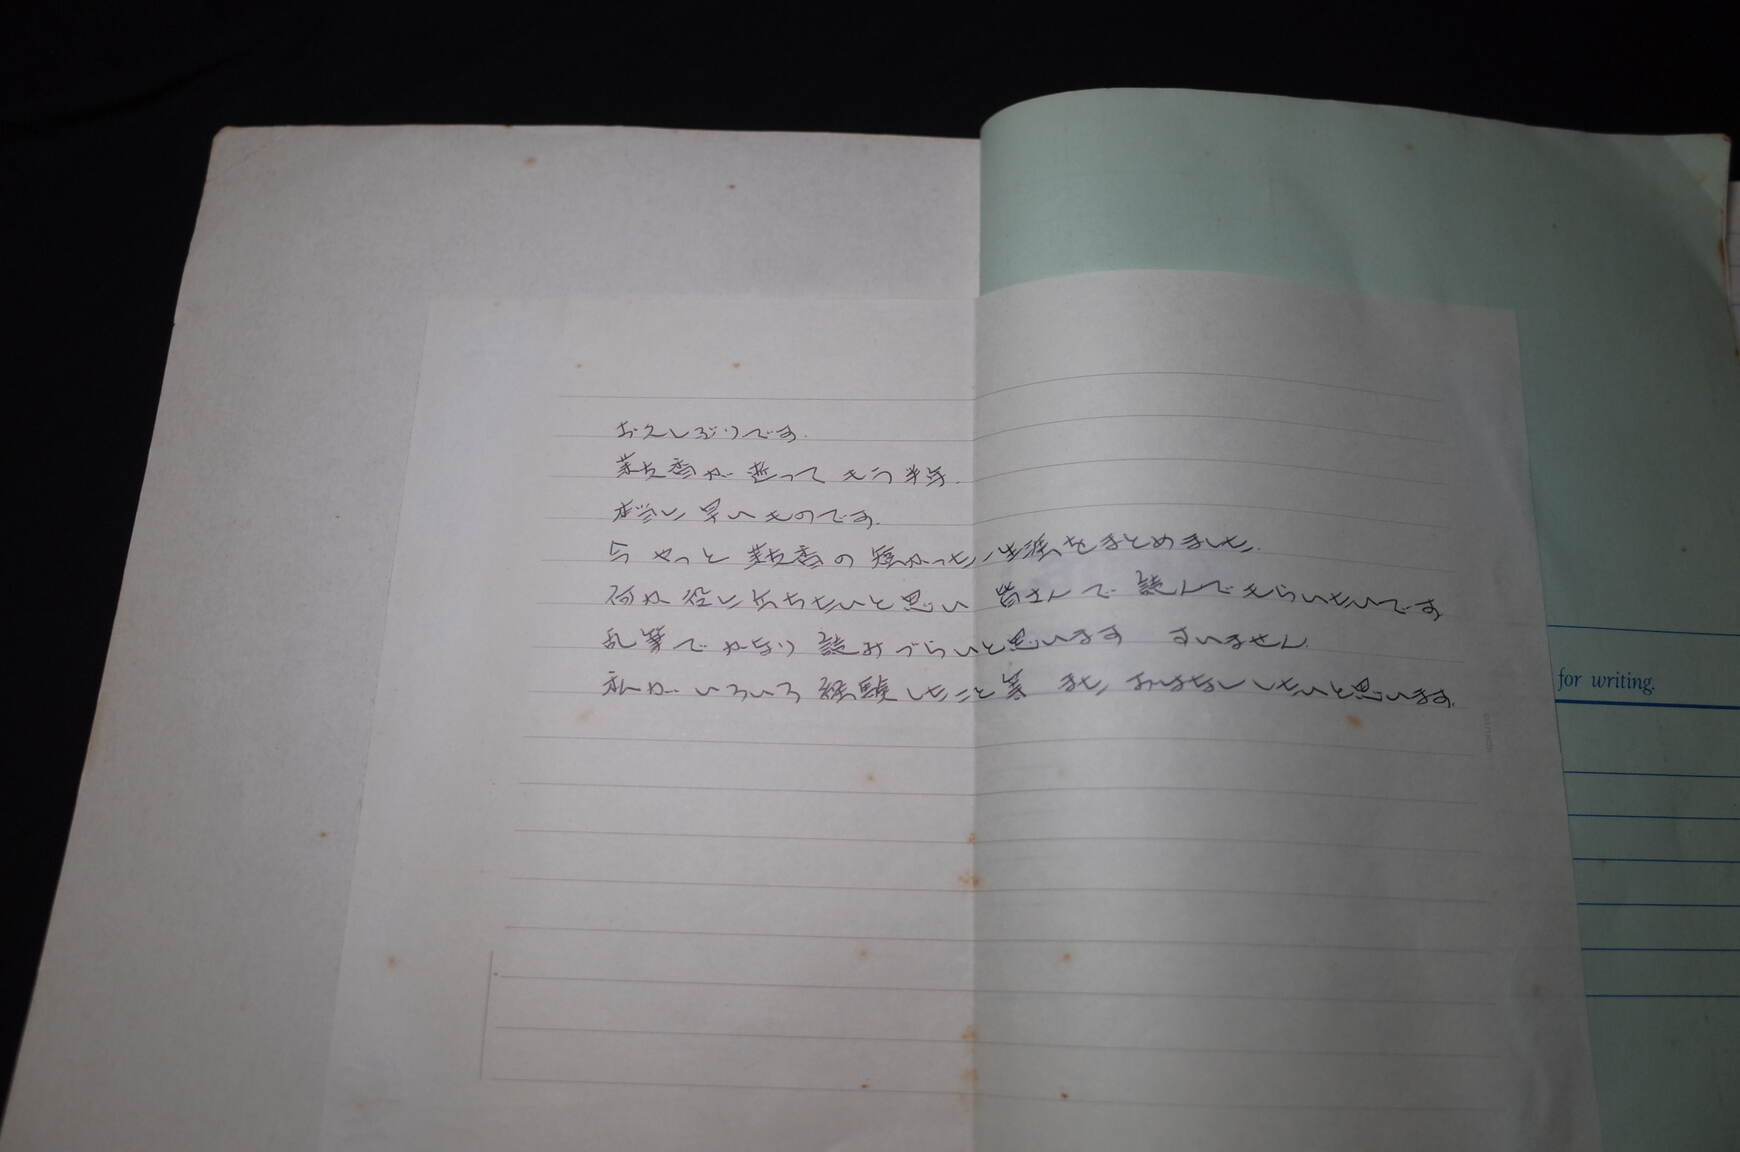 お久しぶりです.
が逝って もう半年.
本当に 早いものです.
今 やっと の 短かった 生涯をまとめました.
何か 役に立ちたいと思い 皆さんで 読んでもらいたいです
乱筆で かなり 読みづらいと思います すいません.
私が いろいろ 経験したこと等 また おはなし したいと思います.
for writing.